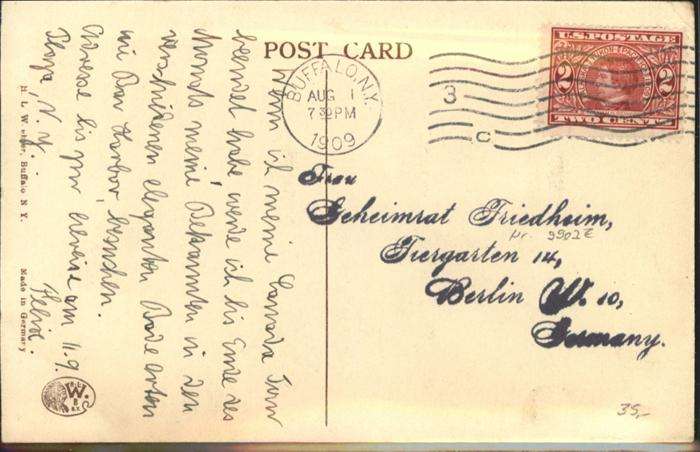 POST CARD
BUFFALO, N.Y.
AUG 1
7 30 PM
1909
3
C
U.S. POSTAGE
2 2
TWO CENTS
Frau
Geheimrat Friedheim,
Tiergarten 14,
Berlin W. 10,
Germany.
Nr. 9902 E
35,-
Wenn ich meine Canada Tour
beendet habe werde ich bis Ende des
Monats meine Bekannten in den
verschiedenen eleganten Badeorten
um Bar Harbor besuchen.
Adresse bis zur am 11.9.
Plaza, N.Y.
H. L. Buffalo N. Y.
Made in Germany
W.